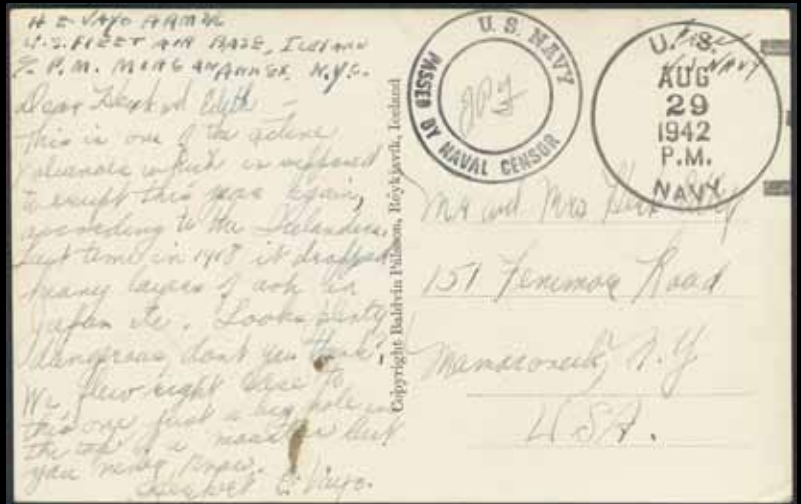 H E VAYO ARM2c
U.S. FLEET AIR BASE, ICELAND
% P.M. MORGAN ANNEX, N.Y.C.
Dear and Edith –
This is one of the active
volcanoes which is supposed
to erupt this year again,
according to the Icelanders.
Last time in 1918 it dropped
heavy layers of ash in
Japan etc. Looks plenty
dangerous don't you think?
We flew right close to
this one just a big hole in
the top of a mountain but
you never know.
E. Vayo.
Copyright Baldvin Pálsson, Reykjavík, Iceland
U. S. NAVY
PASSED BY NAVAL CENSOR
Free
U.S. NAVY
U. S.
AUG
29
1942
P.M.
NAVY
Mr and Mrs
151 Fenimore Road
Mamaroneck, N.Y.
U.S.A.